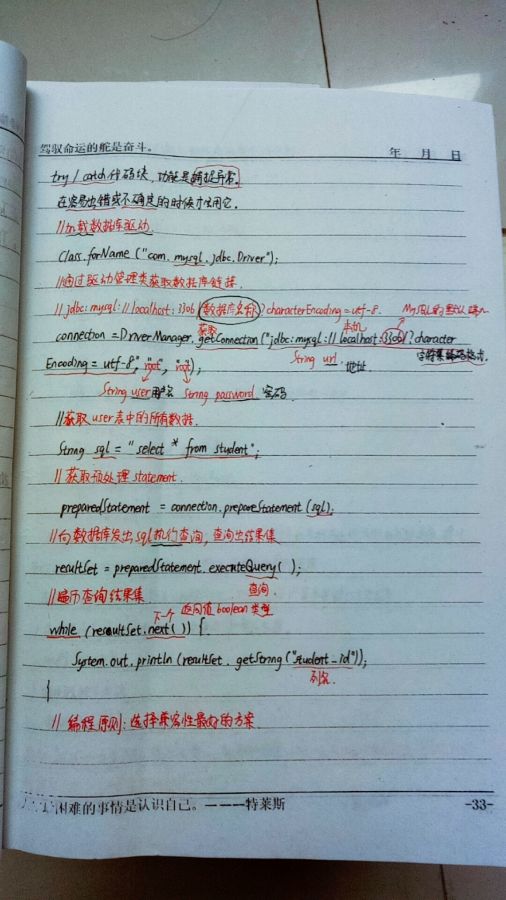 驾驭命运的舵是奋斗。 年 月 日
try / catch 代码块, 功能是捕捉异常。
在容易出错或不确定的时候才生用它。
//加载数据库驱动.
Class.forName ("com.mysql.jdbc.Driver");
//通过驱动管理类获取数据库链接.
// jdbc:mysql://localhost:3306/数据库名称?characterEncoding=utf-8. MySQL的默认端口
获取 本机
connection =DriverManager.getConnection ("jdbc:mysql://localhost:3306/?character
String url 地址 字符集编码格式.
Encoding = utf-8", "root", "root");
String user用户名 String password 密码
//获取user表中的所有数据.
String sql = " select * from student";
// 获取预处理 statement.
preparedStatement = connection.prepareStatement (sql);
//向数据库发出sql执行查询, 查询出结果集
resultSet = preparedStatement.executeQuery( );
查询.
//遍历查询结果集
下一个 返回值 boolean 类型
while (resaultSet.next( )) {
System.out.println (resultSet. getString("student_id"));
列名.
}
// 编程原则: 选择兼容性最好的方案
困难的事情是认识自己。————特莱斯 -33-